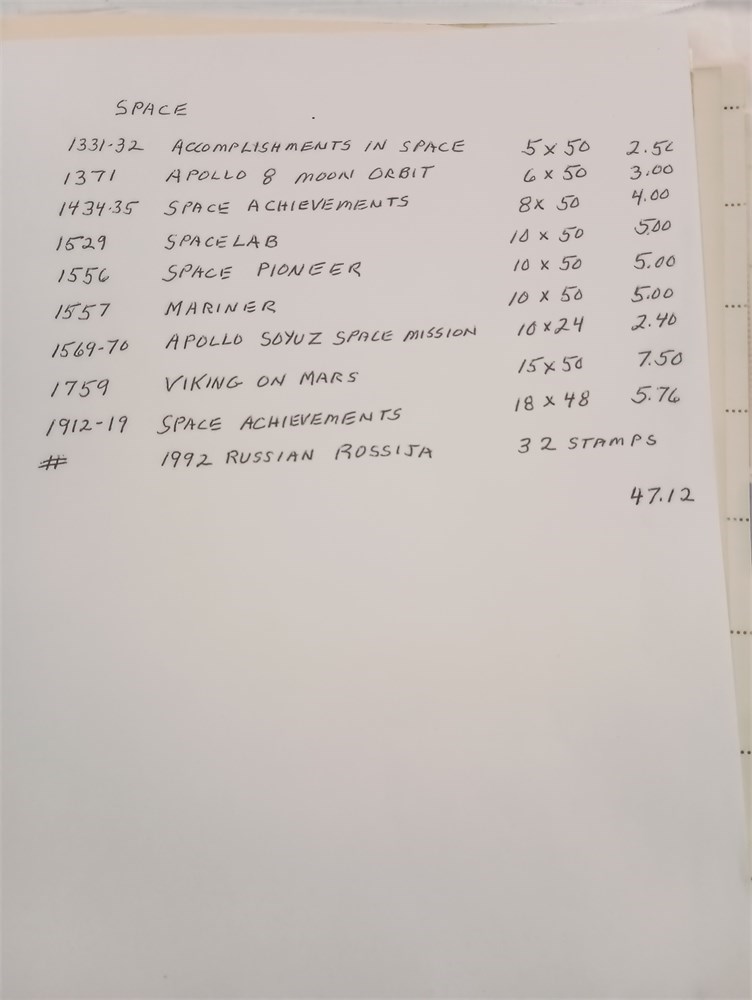 SPACE
1331-32 ACCOMPLISHMENTS IN SPACE 5 x 50 2.50
1371 APOLLO 8 MOON ORBIT 6 x 50 3.00
1434-35 SPACE ACHIEVEMENTS 8 x 50 4.00
1529 SPACELAB 10 x 50 5.00
1556 SPACE PIONEER 10 x 50 5.00
1557 MARINER 10 x 50 5.00
1569-70 APOLLO SOYUZ SPACE MISSION 10 x 24 2.40
1759 VIKING ON MARS 15 x 50 7.50
1912-19 SPACE ACHIEVEMENTS 18 x 48 5.76
# 1992 RUSSIAN ROSSIJA 32 STAMPS
47.12